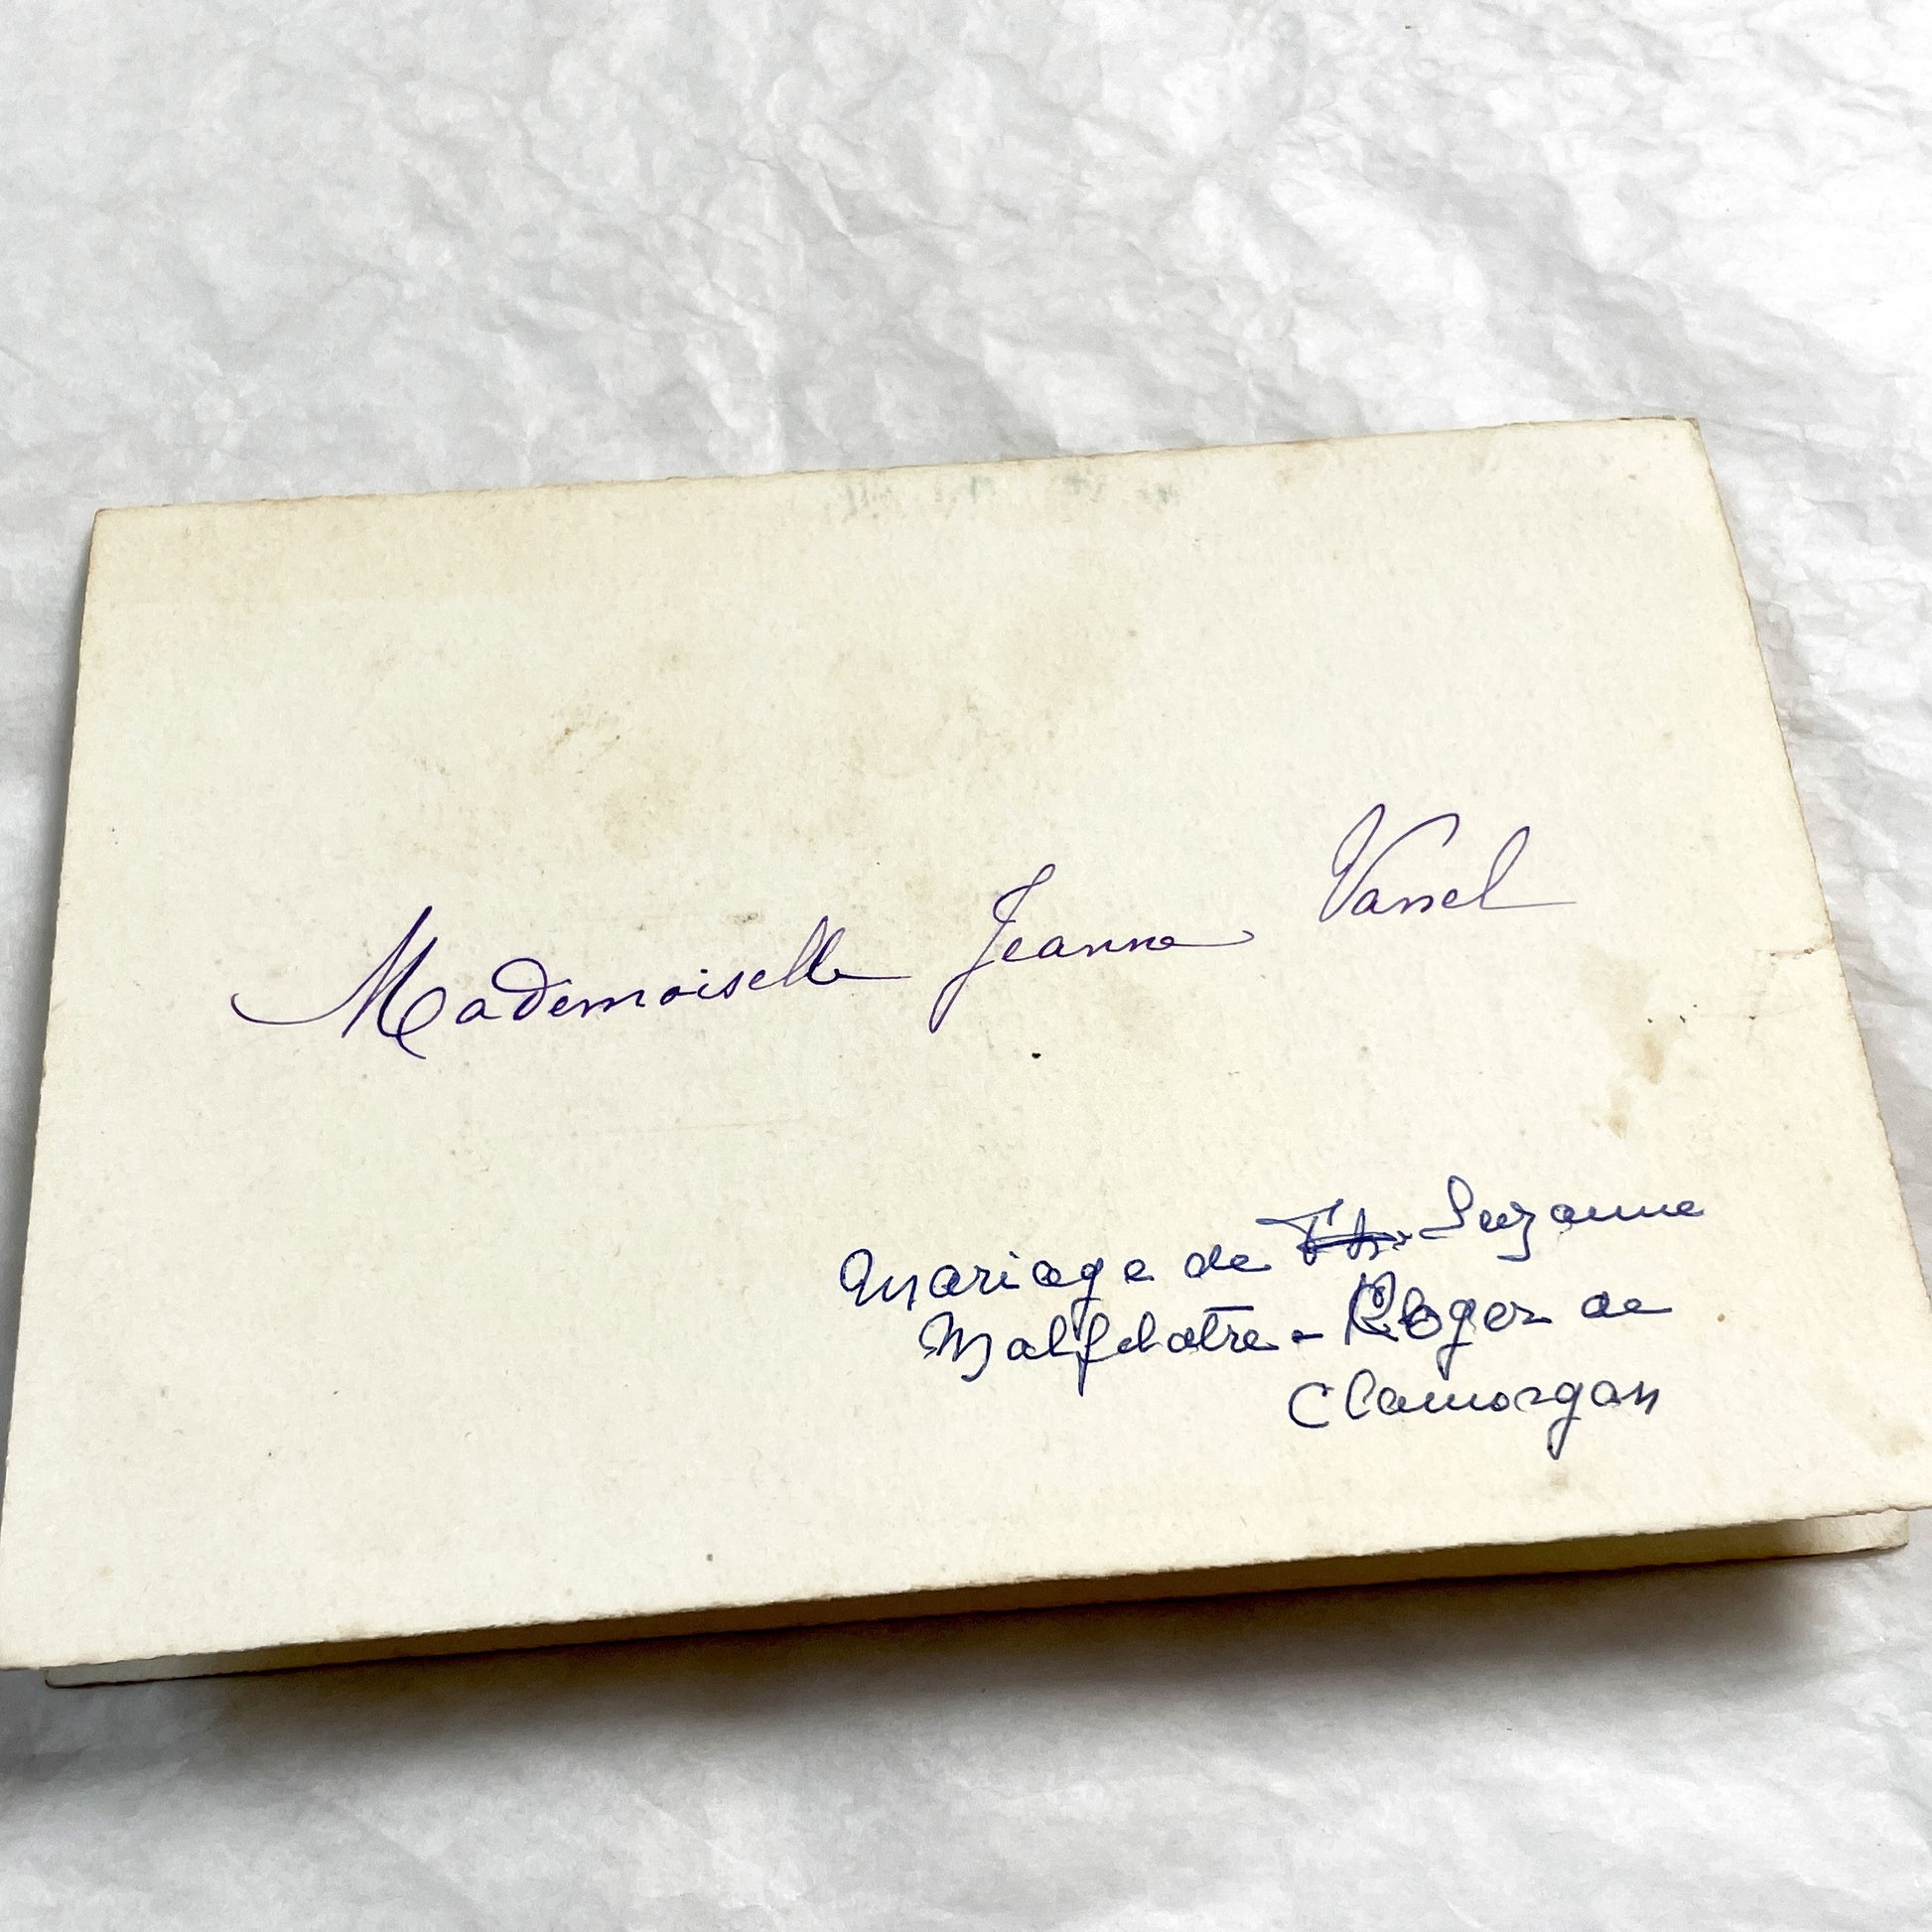 Mademoiselle Jeanne Vassel
Mariage de Suzanne
Malfilatre - Roger de
Clamorgan